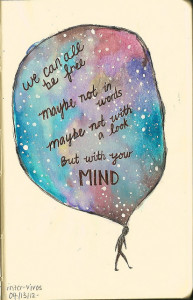 we can all
be free
maybe not in
words
maybe not with
a look
But with your
MIND
inter-vivos
04/13/12-